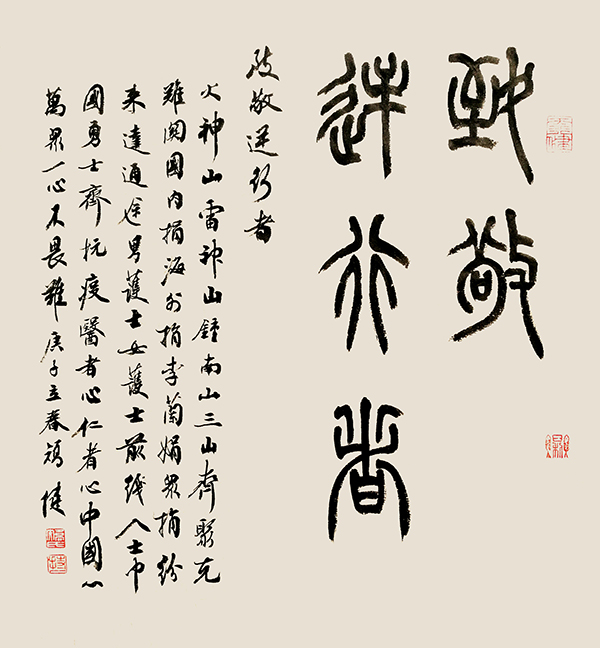 致敬
逆行者
致敬逆行者
火神山雷神山鐘南山三山齊聚克
難關國内捐海外捐李蘭娟眾捐紛
来達通途男護士女護士前綫人士巾
國勇士齊抗疫醫者心仁者心中國心
萬眾一心不畏難庚子立春馮健